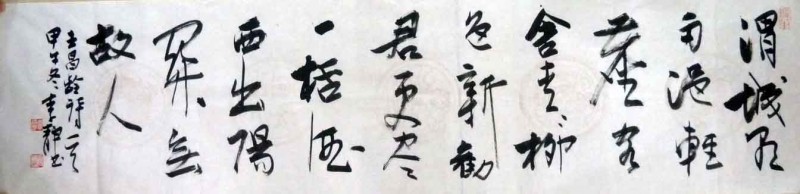 渭城朝
雨浥輕
塵客
舍青々柳
色新勸
君更尽
一杯酒
西出陽
關無
故人
王昌齡詩一首
甲午冬李靜书